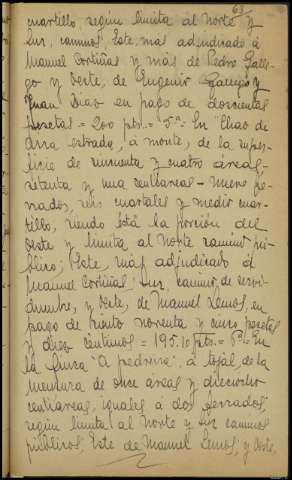 63
martillo según limita al Norte y
Sur, caminos, Este, mas adjudicado á
Manuel Cortiñas y más de Pedro Galle-
go y Oeste, de Eugenio Gallego y
Juan Diaz en pago de doscientas
pesetas = 200 pts. = 5ª = En "Chao de
Arra estrada, á monte, de la super-
ficie de cincuenta y cuatro áreas,
setenta y una centiareas - nueve fe-
rrados, seis cuartales y medio cuar-
tillo, siendo ésta la porción del
Oeste y limita al Norte camino pú-
blico; Este, más adjudicado á
Manuel Cortiñas; Sur, camino de servi-
dumbre, y Oeste, de Manuel Lemos, en
pago de ciento noventa y cinco pesetas
y diez centimos = 195.10 pts. = 6ª En
la finca "A pedreira", á tojal, de la
mensura de once areas y dieciocho
centiareas, iguales á dos ferrados,
según limita al Norte y Sur caminos
públicos, Este de Manuel Lemos, y Oeste,